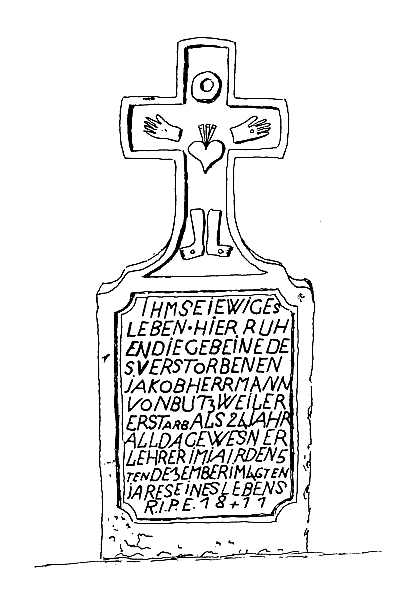 IHMSEIEWIGES
LEBEN·HIER RUH
ENDIEGEBEINEDE
SVERSTORBENEN
JAKOBHERRMANN
VONBUTZWEILER
ERSTARBALS24JAHR
ALLDAGEWESNER
LEHRERIMIAIRDEN5
TENDEZEMBERIM46TEN
IARESEINESLEBENS
R.I.P.E. 18+11